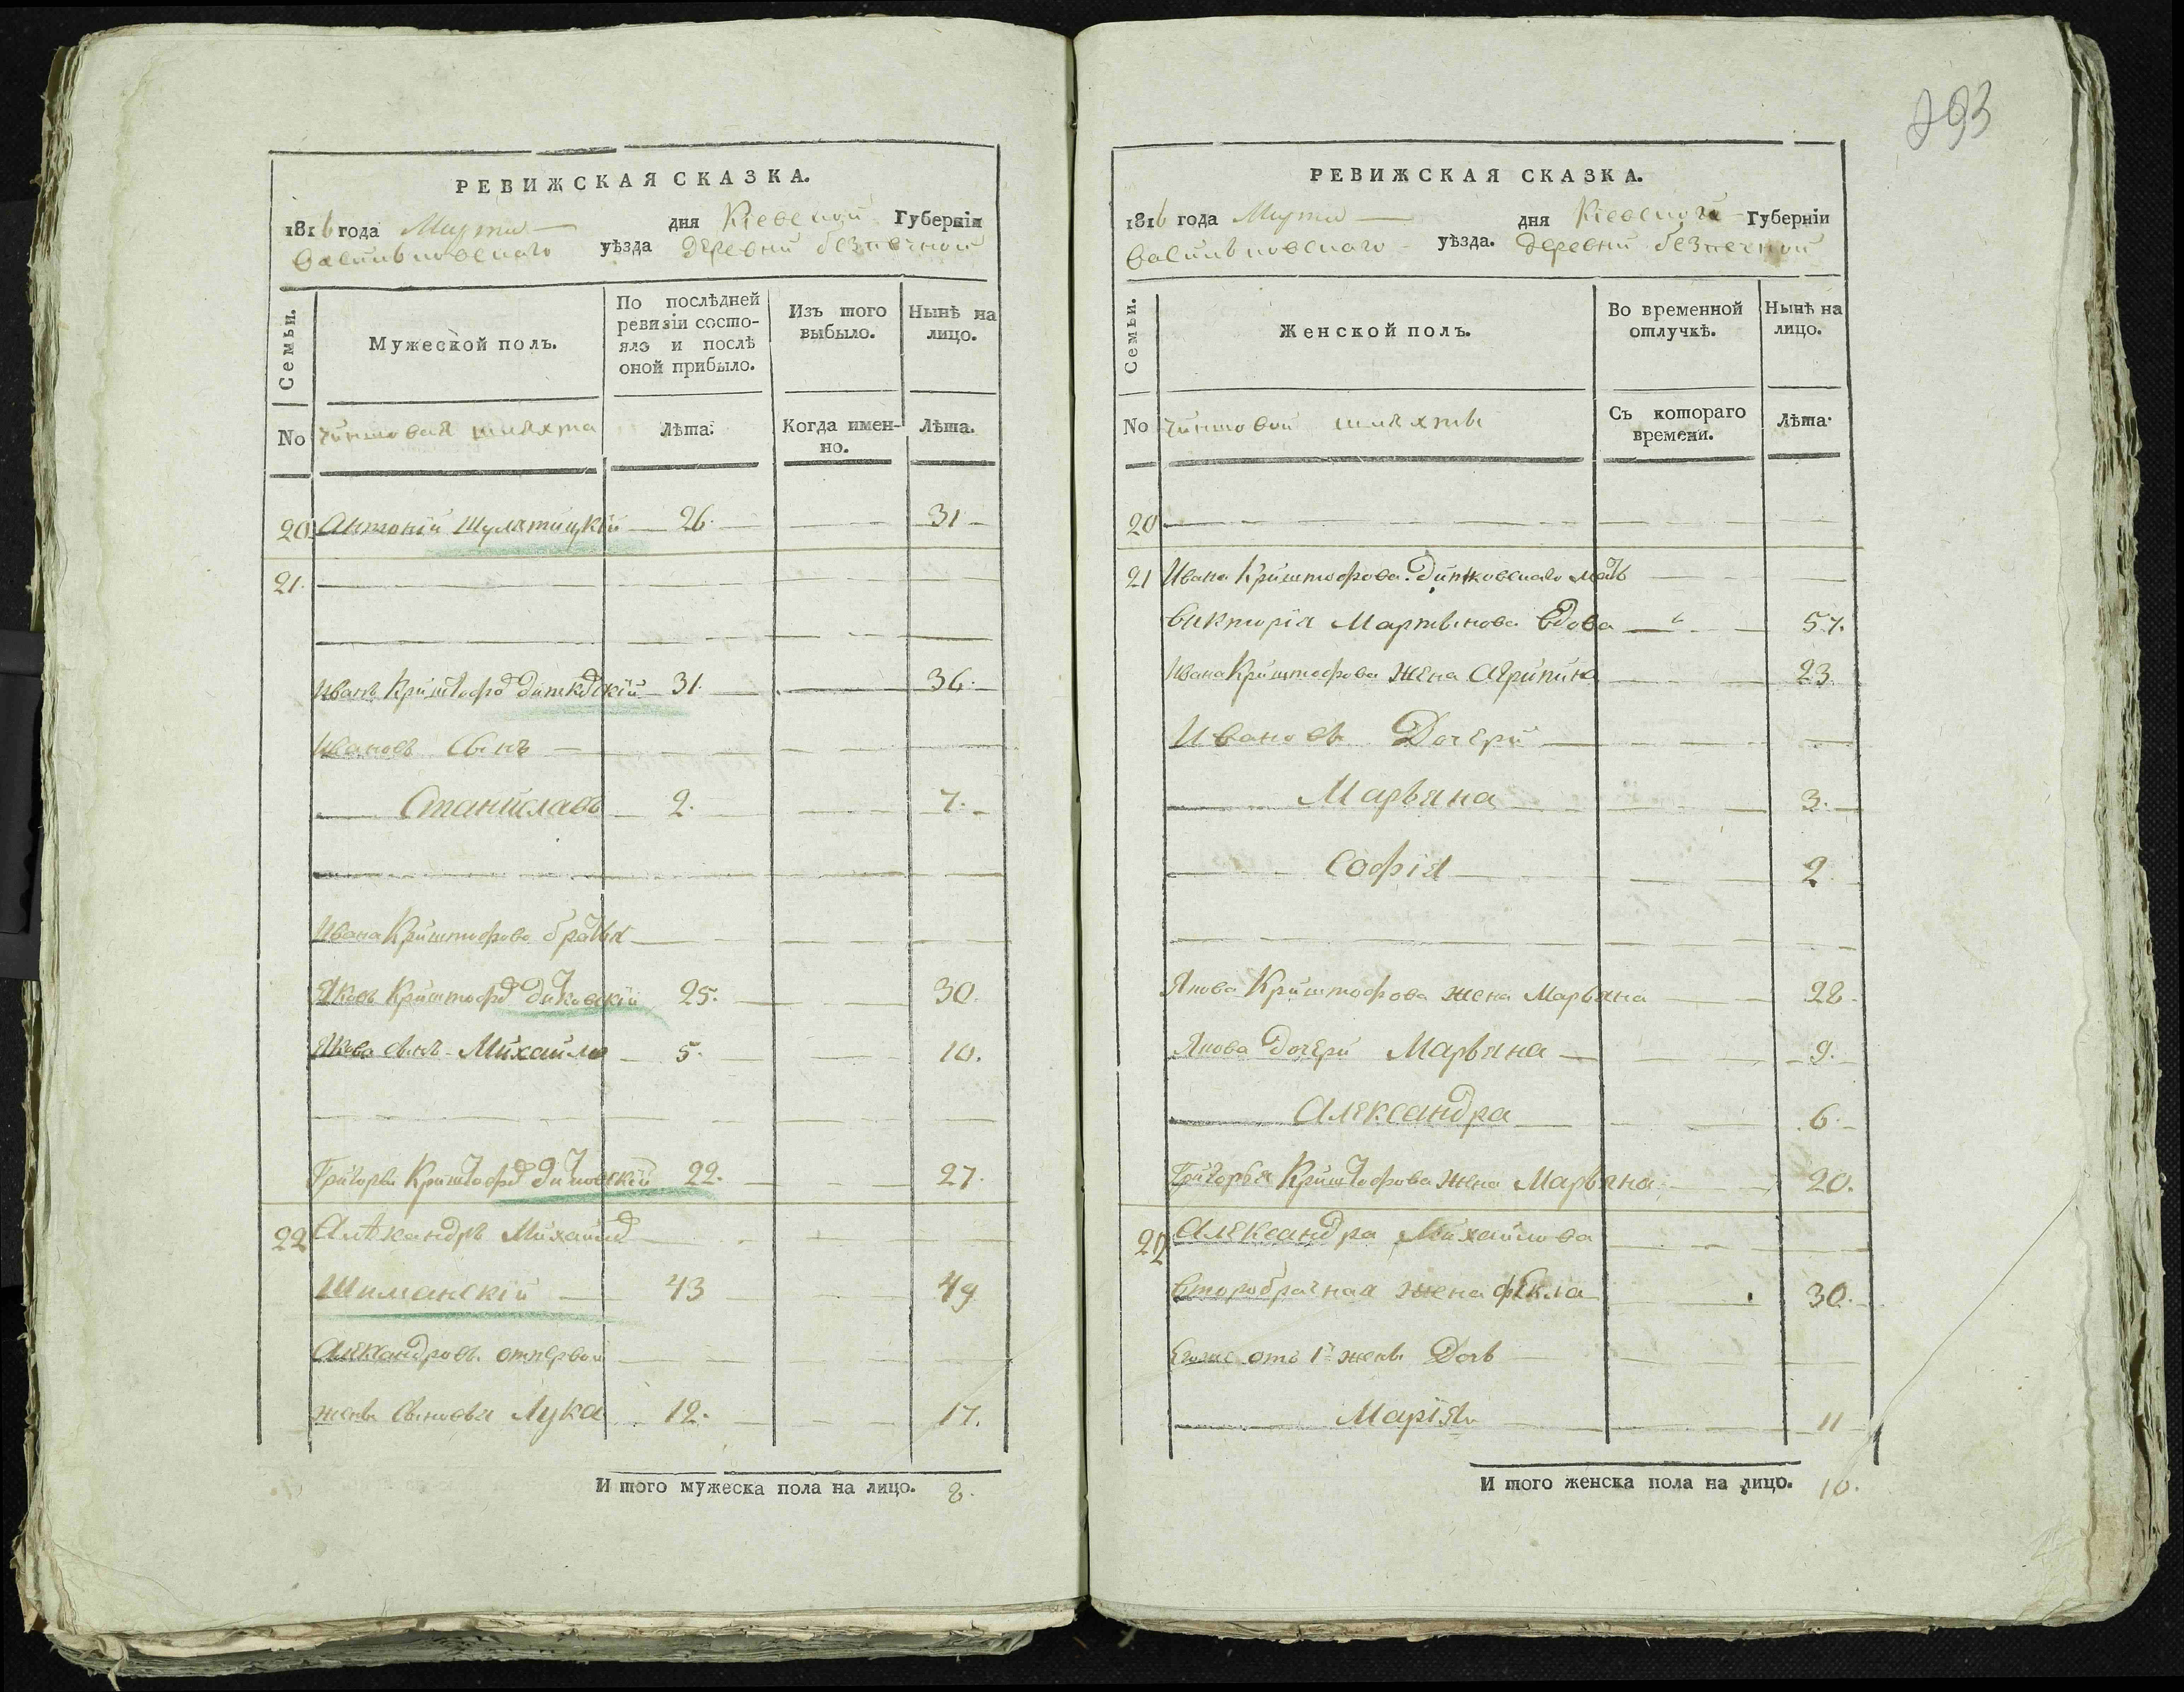 293
РЕВИЖСКАЯ СКАЗКА.
1816 года Марта дня Кіевской Губерніи
Васильковскаго уѣзда деревни безпечной
Семьи.
Мужеской полъ.
По послѣдней ревизіи состояло и послѣ оной прибыло.
Изъ того выбыло.
Нынѣ на лицо.
No чиншовая шляхта Лѣта. Когда именно. Лѣта.
20 Антоній Шулятицкій 26. 31
21.
Иванъ Криштофов Дитковскій 31. 36.
Ивановъ Сынъ
Станиславъ 2. 7.
Ивана Криштофова братья
Яковъ Криштофов Дитковскій 25. 30.
Якова сынъ Михайло 5. 10.
Григорій Криштофов Дитковскій 22. 27.
22 Александръ Михайлов
Шиманскій 43 49
Александровъ отпервой
жены сыновья Лука 12. 17.
И того мужеска пола на лицо. 8.
РЕВИЖСКАЯ СКАЗКА.
1816 года Марта дня Кіевской Губерніи
Васильковскаго уѣзда. деревни безпечной
Семьи.
Женской полъ.
Во временной отлучкѣ.
Нынѣ на лицо.
No чиншовой шляхты Съ котораго времени. Лѣта.
20
21 Ивана Криштофова Дитковскаго мать
Викторія Мартынова вдова 57.
Ивана Криштофова жена Агрипина 23.
Ивановы Дочери
Марьяна 3.
Софія 2
Якова Криштофова жена Марьяна 28.
Якова дочери Марьяна 9.
Александра 6.
Григорья Криштофова жена Марьяна 20.
22 Александра Михайлова
второбрачная жена фекла 30.
Егоже отъ 1й жены Дочь
Марія 11
И того женска пола на лицо. 10.